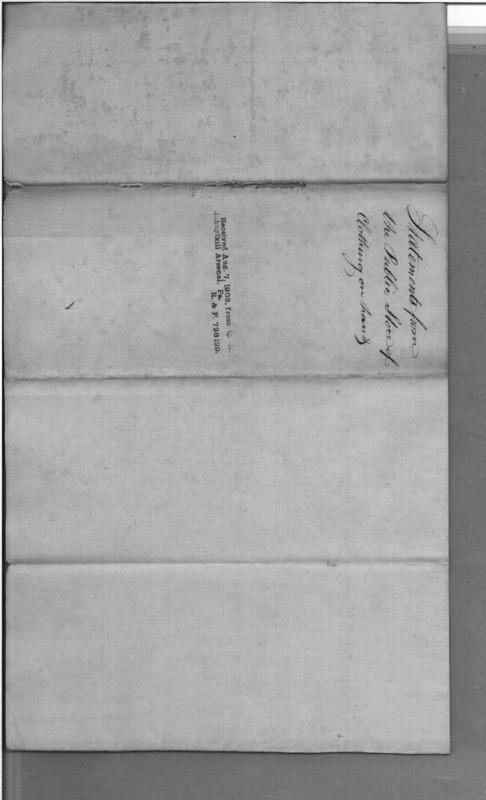 Statements from
the Public Store of
Clothing on hand
Received Aug. 7, 1903, from
Schuylkill Arsenal, Pa.
R. & P. 728190.